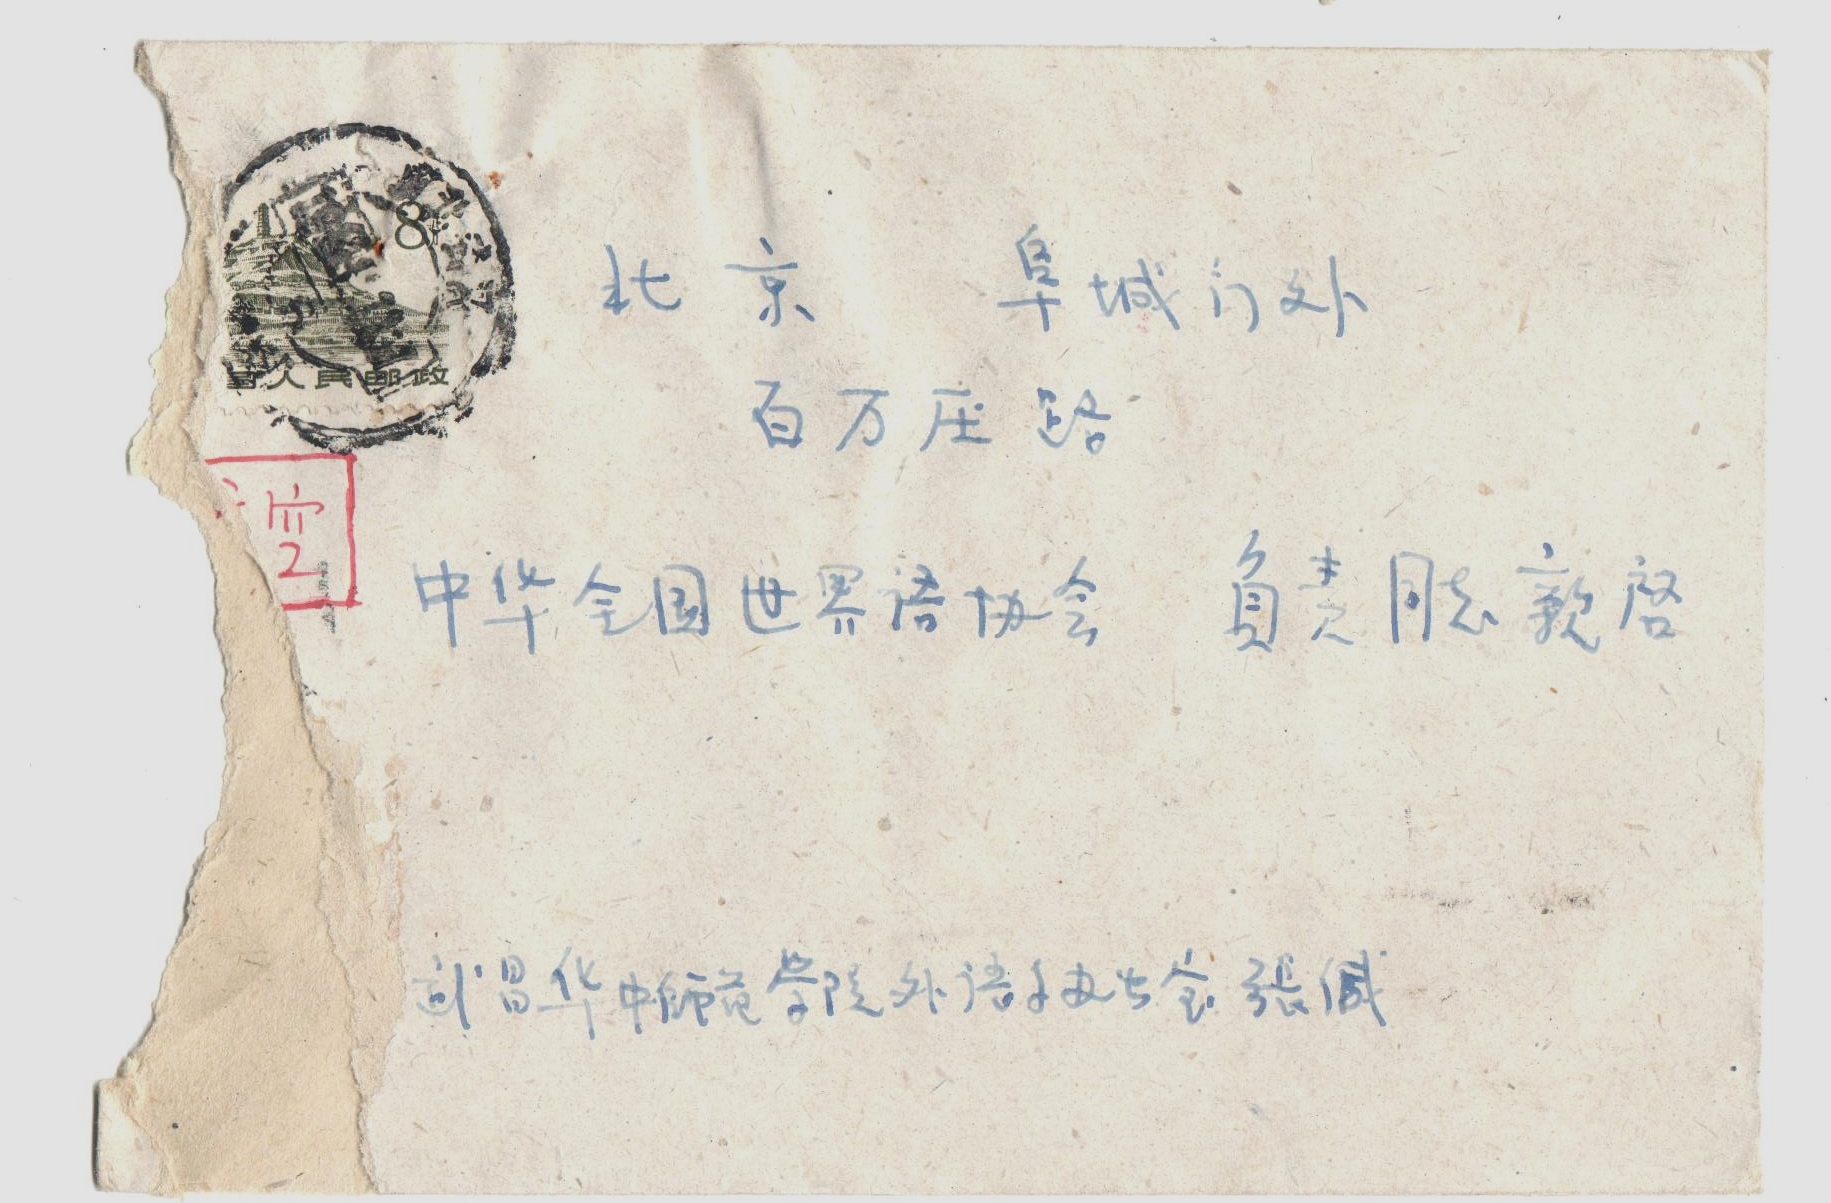 8
人民邮政
空
北京 阜城门外
百万庄路
中华全国世界语协会 負责同志亲启
武昌华中师范学院外语系办公室 張